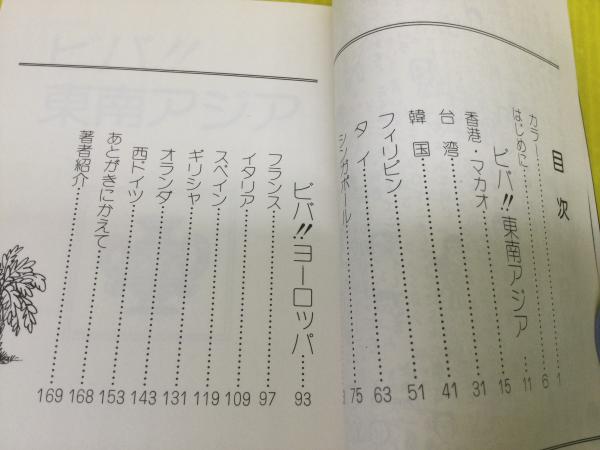 目次
カラー……1
はじめに……6
ビバ!!東南アジア……11
香港・マカオ……15
台湾……31
韓国……41
フィリピン……51
タイ……63
シンガポール……75
ビバ!!ヨーロッパ……93
フランス……97
イタリア……109
スペイン……119
ギリシャ……131
オランダ……143
西ドイツ……153
あとがきにかえて……168
著者紹介……169